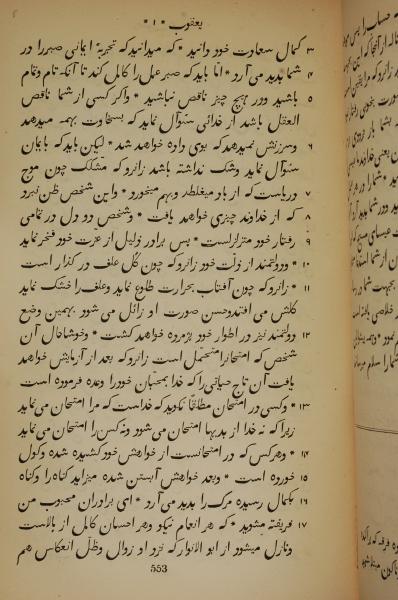 یعقوب * ۱ *
۳ کمال سعادت خود دانید * که میدانید که تجربهٔ ایمانی صبر را در
۴ شما پدید می آرد * امّا باید که صبر عمل را کامل کند تا آنکه تام وتمام
۵ باشید ودر هیچ چیز ناقص نباشید * واکر کسی از شما ناقص
العقل باشد از خدائی سئوال نماید که بسخاوت بهمه میدهد
۶ وسرزنش نمیدهد که بوی داده خواهد شد * لیکن باید که بایمان
سئوال نماید وشک نداشته باشد زانرو که متشکک چون موج
۷ دریاست که از باد میغلطد وبهم میخورد * واین شخص ظن نبرد
۸ که از خداوند چیزی خواهد یافت * وشخص دو دل در تمامی
۹ رفتار خود متزلزلست * پس برادر ذلیل از عزّت خود فخر نماید
۱۰ * ودولتمند از ذلّت خود زانرو که چون کُل علف در کذار است
۱۱ * زانرو که چون آفتاب بحرارت طلوع نماید وعلف را خشک نماید
کلش می افتد وحسن صورت او زائل می شود بهمین وضع
۱۲ دولتمند نیز در اطوار خود پژمرده خواهد کشت * وخوشاحال آن
شخص که امتحانرا متحمل است زانرو که بعد از آزمایش خواهد
یافت آن تاج حیاتی را که خدا بمحبّان خود را وعده فرموده است
۱۳ * وکسی در امتحان مطلقًا نکوید که خداست که مرا امتحان می نماید
زیرا که نه خدا از بدیها امتحان می شود ونه کس را امتحان می نماید
۱۴ * وهر کس که در امتحانست از خواهش خود کشیده شده وکول
۱۵ خورده است * وبعد خواهش آبستن شده میزاید کناه را وکناه
۱۶ بکمال رسیده مرک را پدید می آرد * ای برادران محبوب من
۱۷ فریفته مشوید * که هر انعام نیکو وهر احسان کامل از بالاست
ونازل میشود از ابو الانوار که نزد او زوال وظلّ انعکاس هم
553